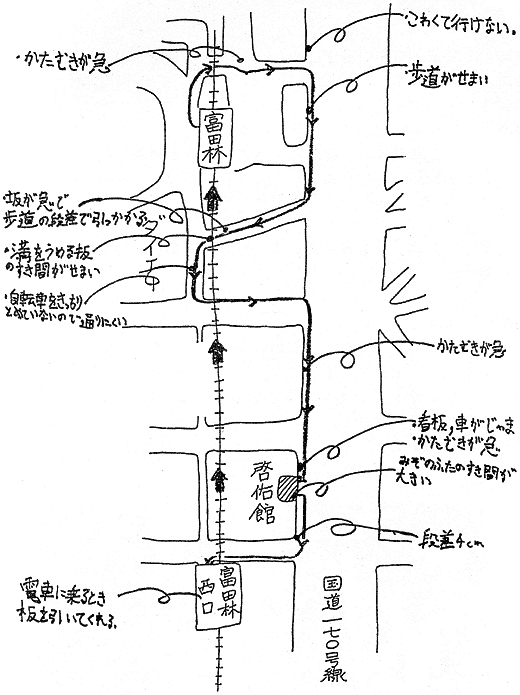 ・こわくて行けない。
・かたむきが急
・歩道がせまい
富田林
・坂が急で
歩道の段差で引っかかる
ダイエー
・溝をうめる板
のすき間がせまい
・自転車をきっちり
とめていないので通りにくい
かたむきが急
・看板,車がじゃま
・かたむきが急
みぞのふたのすき間が
大きい
啓佑館
段差4cm
富田林
西口
電車に乗るとき
板を引いてくれる。
国道一七〇号線